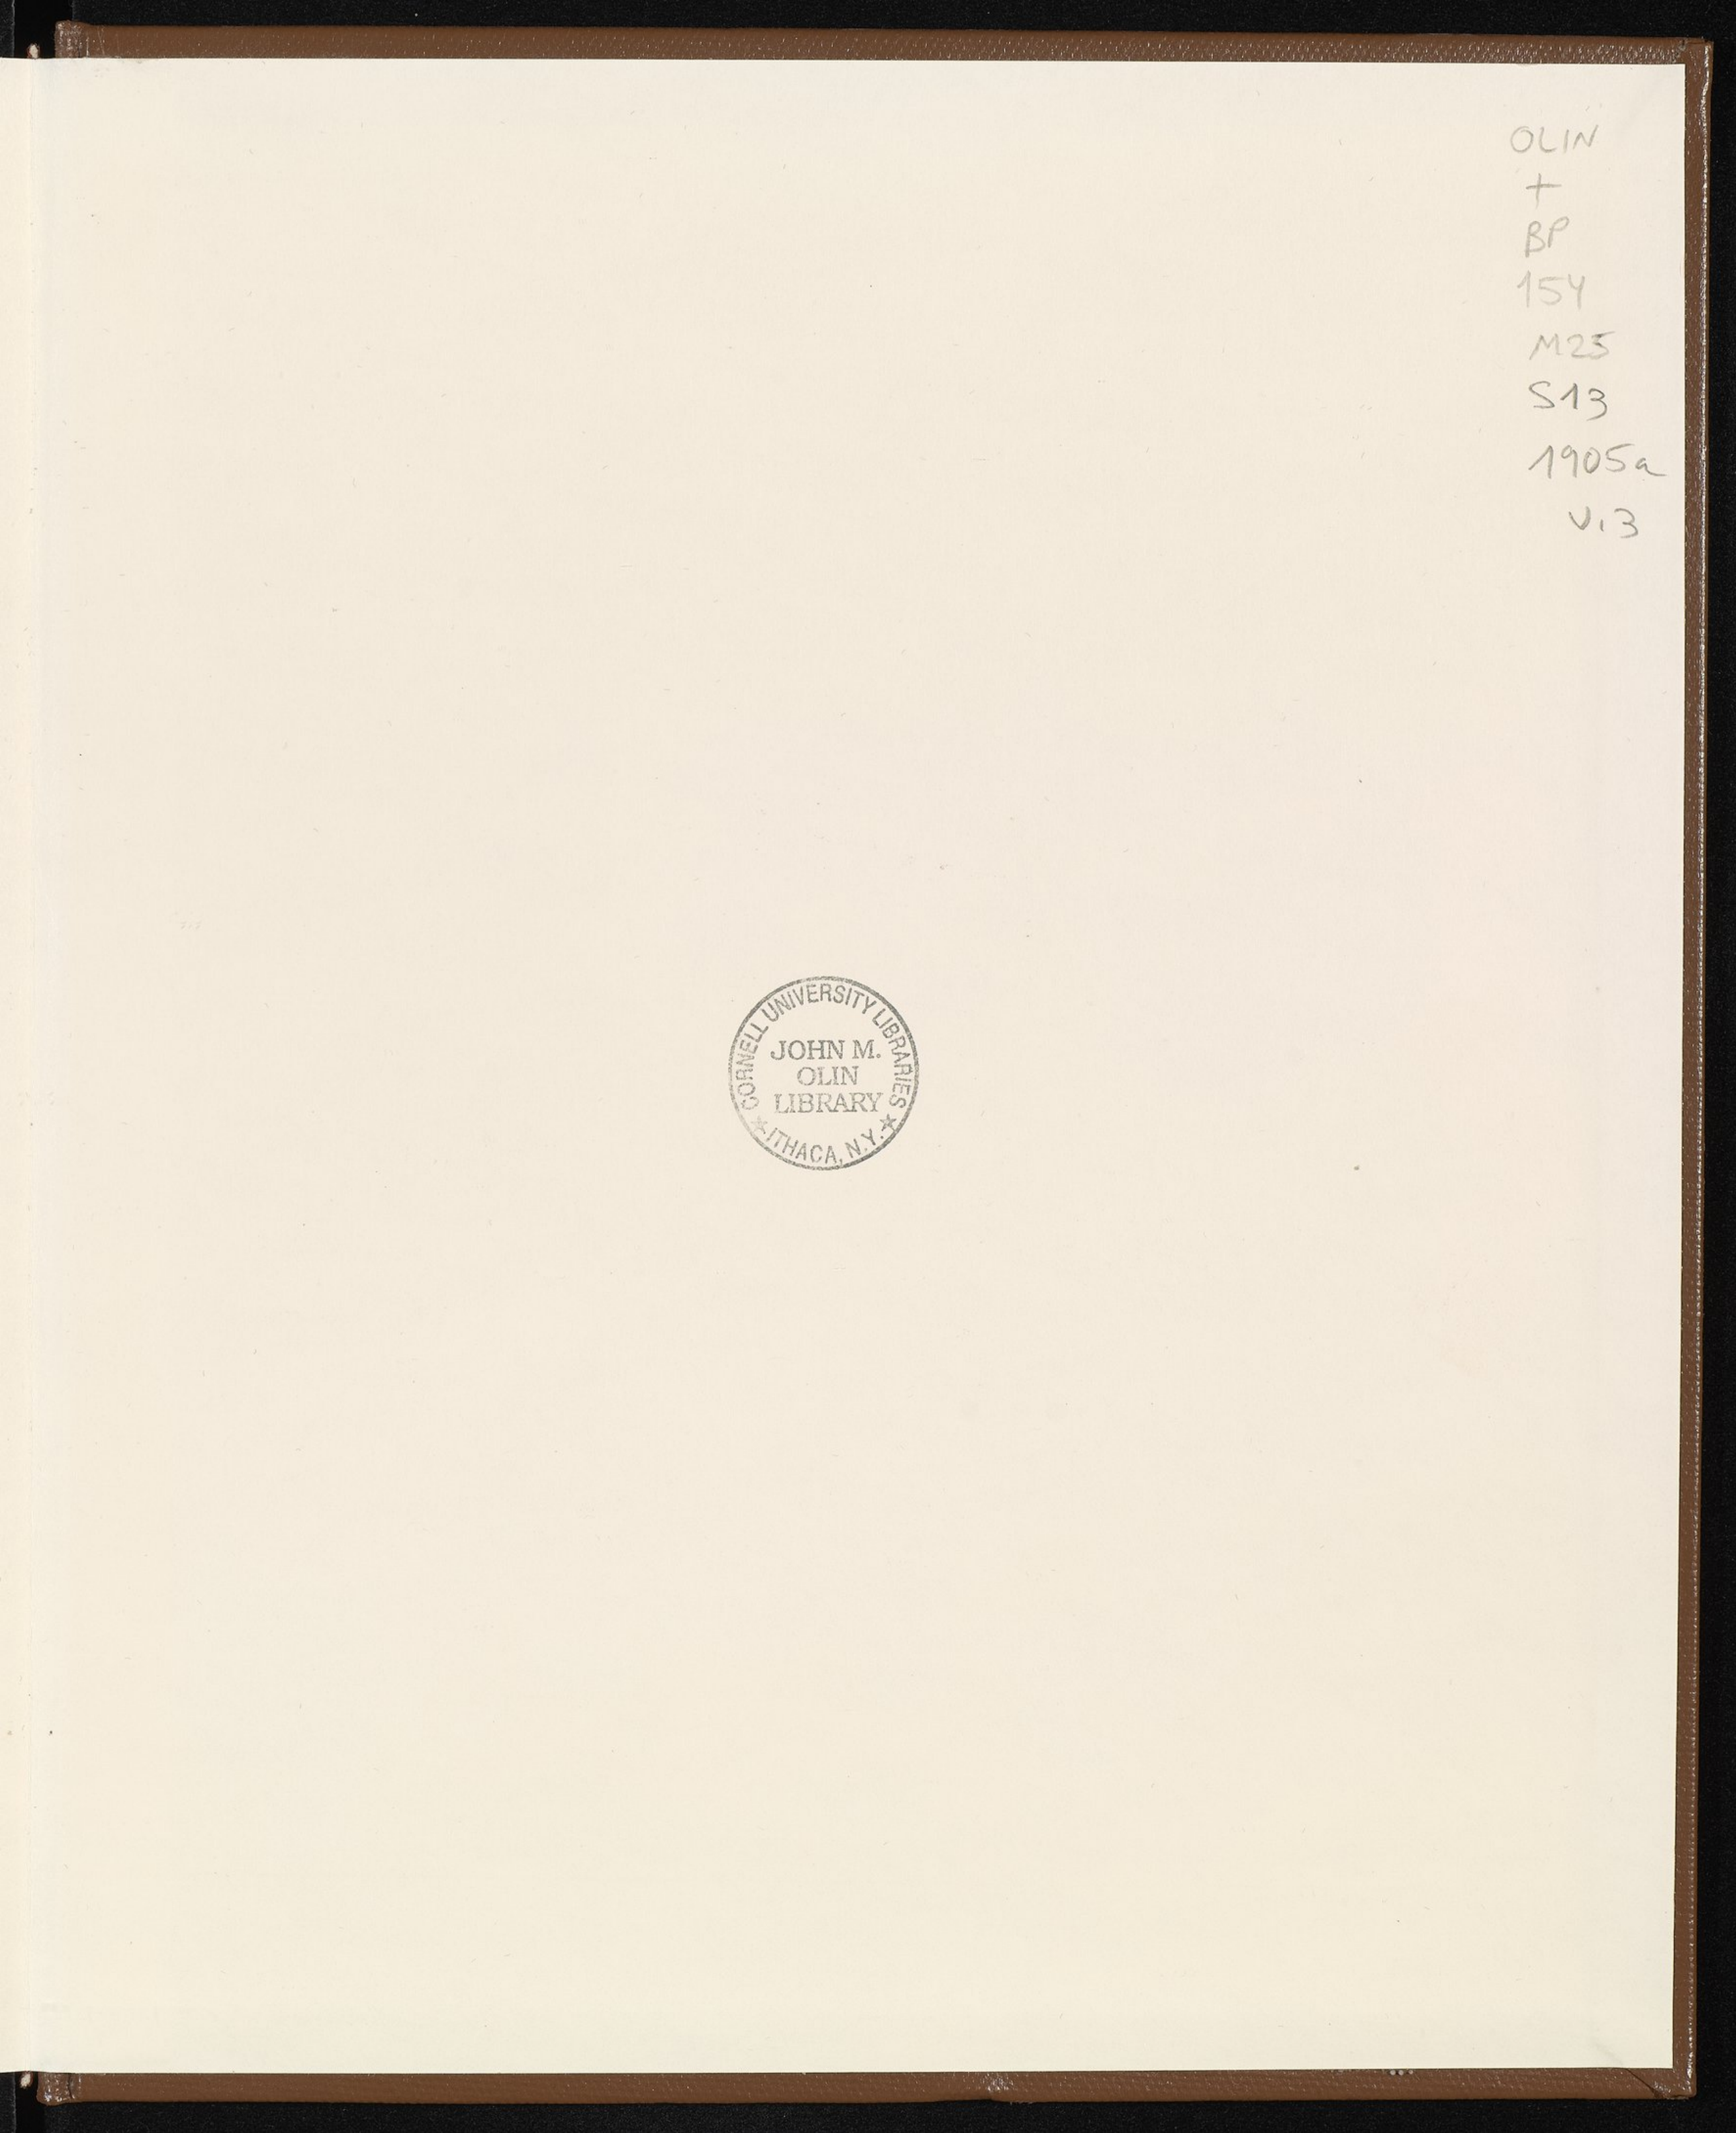 OLIN
+
BP
154
M25
S13
1905a
v.3
CORNELL UNIVERSITY LIBRARIES
JOHN M.
OLIN
LIBRARY
★ ITHACA, N.Y. ★